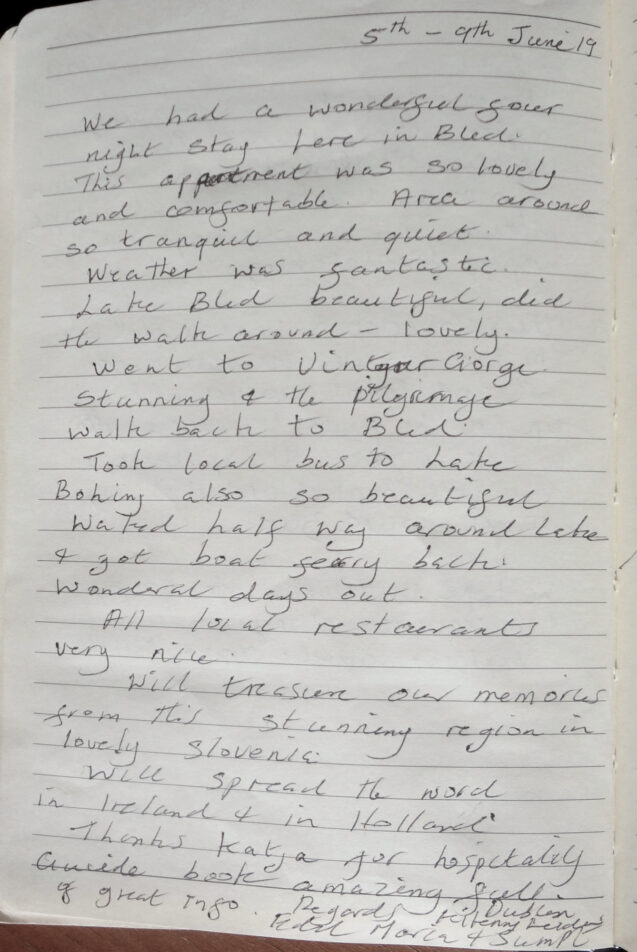 5th - 9th June 19
We had a wonderful four
night stay here in Bled.
This apartment was so lovely
and comfortable. Area around
so tranquil and quiet.
Weather was fantastic.
Lake Bled beautiful, did
the walk around - lovely.
Went to Vintgar Gorge.
Stunning & the pilgrimage
walk back to Bled.
Took local bus to Lake
Bohinj also so beautiful
Walked half way around Lake
& got boat ferry back.
Wonderal days out.
All local restaurants
very nice.
Will treasure our memories
from this stunning region in
lovely Slovenia.
Will spread the word
in Ireland & in Holland
Thanks Katja for hospitality
Guide book amazing full
of great info. Regards
Dublin
Maria &